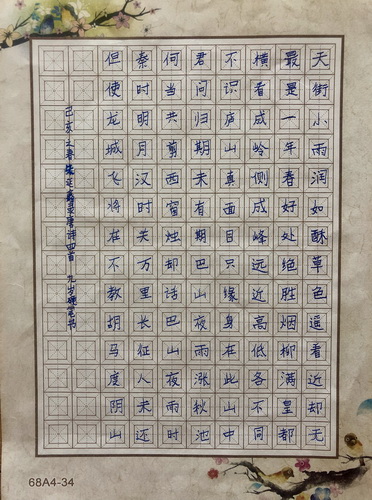 天街小雨润如酥草色遥看近却无
最是一年春好处绝胜烟柳满皇都
横看成岭侧成峰远近高低各不同
不识庐山真面目只缘身在此山中
君问归期未有期巴山夜雨涨秋池
何当共剪西窗烛却话巴山夜雨时
秦时明月汉时关万里长征人未还
但使龙城飞将在不教胡马度阴山
己亥之春 录唐诗四首 九岁硬笔书
68A4-34